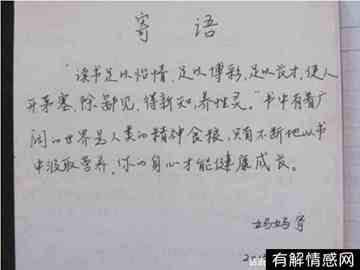 寄语
“读书足以怡情,足以博彩,足以长才,使人
开茅塞,除鄙见,得新知,养性灵。”书中有着广
阔的世界是人类的精神食粮,只有不断地从书
中汲取营养,你的身心才能健康成长。
妈妈写
有解情感网